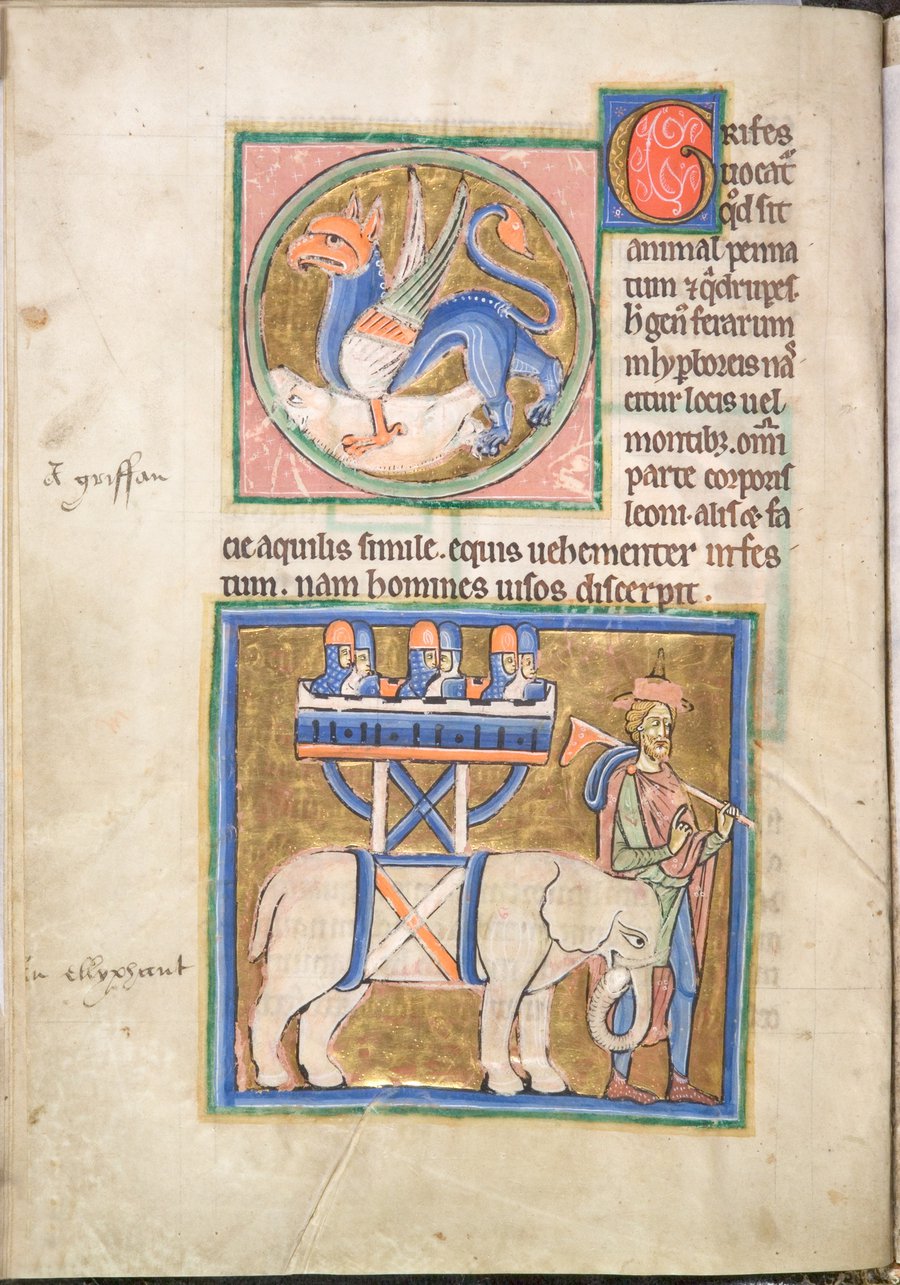 GRifes
uocat᷑
qͦd sit
animal penna
tum ⁊ qͣdrupes.
h̵ gen᷒ ferarum
in hyꝑboreis nas
citur locis uel
montibꝫ. om̅i
parte corporis
leoni. alis ⁊ fa
cie aquilis simile. equis uehementer infes
tum. nam homines uisos discerpit.
A griffan
An ellyphant